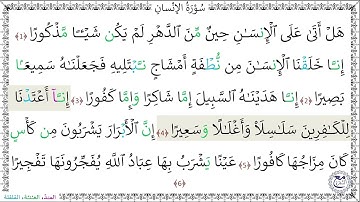 سُورَةُ الإِنْسَانِ
هَلْ أَتَىٰ عَلَى الْإِنسَـٰنِ حِينٌ مِّنَ الدَّهْرِ لَمْ يَكُن شَيْـًٔا مَّذْكُورًا ﴿1﴾
إِنَّا خَلَقْنَا الْإِنسَـٰنَ مِن نُّطْفَةٍ أَمْشَاجٍ نَّبْتَلِيهِ فَجَعَلْنَـٰهُ سَمِيعًۢا
بَصِيرًا ﴿2﴾ إِنَّا هَدَيْنَـٰهُ السَّبِيلَ إِمَّا شَاكِرًا وَإِمَّا كَفُورًا ﴿3﴾ إِنَّآ أَعْتَدْنَا
لِلْكَـٰفِرِينَ سَلَـٰسِلَا۟ وَأَغْلَـٰلًا وَسَعِيرًا ﴿4﴾ إِنَّ الْأَبْرَارَ يَشْرَبُونَ مِن كَأْسٍ
كَانَ مِزَاجُهَا كَافُورًا ﴿5﴾ عَيْنًا يَشْرَبُ بِهَا عِبَادُ اللَّهِ يُفَجِّرُونَهَا تَفْجِيرًا
﴿6﴾
المد، الغنة، القلقلة